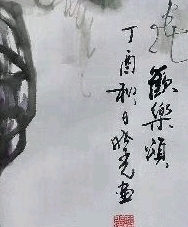 歡樂頌
丁酉秋日曉光画